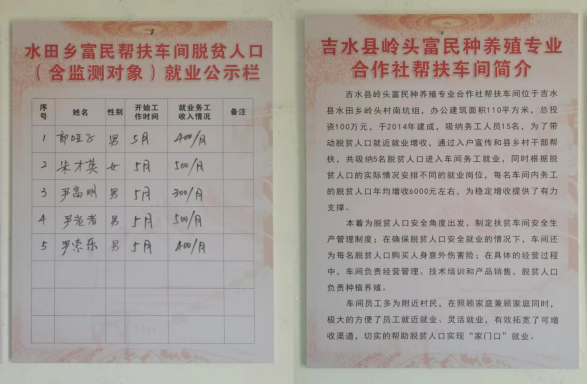 水田乡富民帮扶车间脱贫人口
（含监测对象）就业公示栏
序号 姓名 性别 开始工作时间 就业务工收入情况 备注
1 男 5月 400/月
2 朱才英 女 5月 500/月
3 罗富明 男 5月 300/月
4 罗老者 男 5月 500/月
5 罗 乐 男 5月 400/月
吉水县岭头富民种养殖专业
合作社帮扶车间简介
吉水县岭头富民种养殖专业合作社帮扶车间位于吉水
县水田乡岭头村南坑组，办公建筑面积110平方米，总投
资100万元，于2014年建成，吸纳务工人员15名，为了带
动脱贫人口就近就业增收，通过入户宣传和县乡村干部帮
扶，共吸纳5名脱贫人口进入车间务工就业，同时根据脱
贫人口的实际情况安排不同的就业岗位，每名车间内务工
的脱贫人口年均增收6000元左右，为稳定增收提供了有力
支撑。
本着为脱贫人口安全角度出发，制定扶贫车间安全生
产管理制度；在确保脱贫人口安全就业的情况下，车间还
为每名脱贫人口购买人身意外伤害险；在具体的经营过程
中，车间负责经营管理、技术培训和产品销售，脱贫人口
负责种植养殖。
车间员工多为附近村民，在照顾家庭兼顾家庭同时，
极大的方便了员工就近就业、灵活就业，有效拓宽了可增
收渠道，切实的帮助脱贫人口实现“家门口”就业。